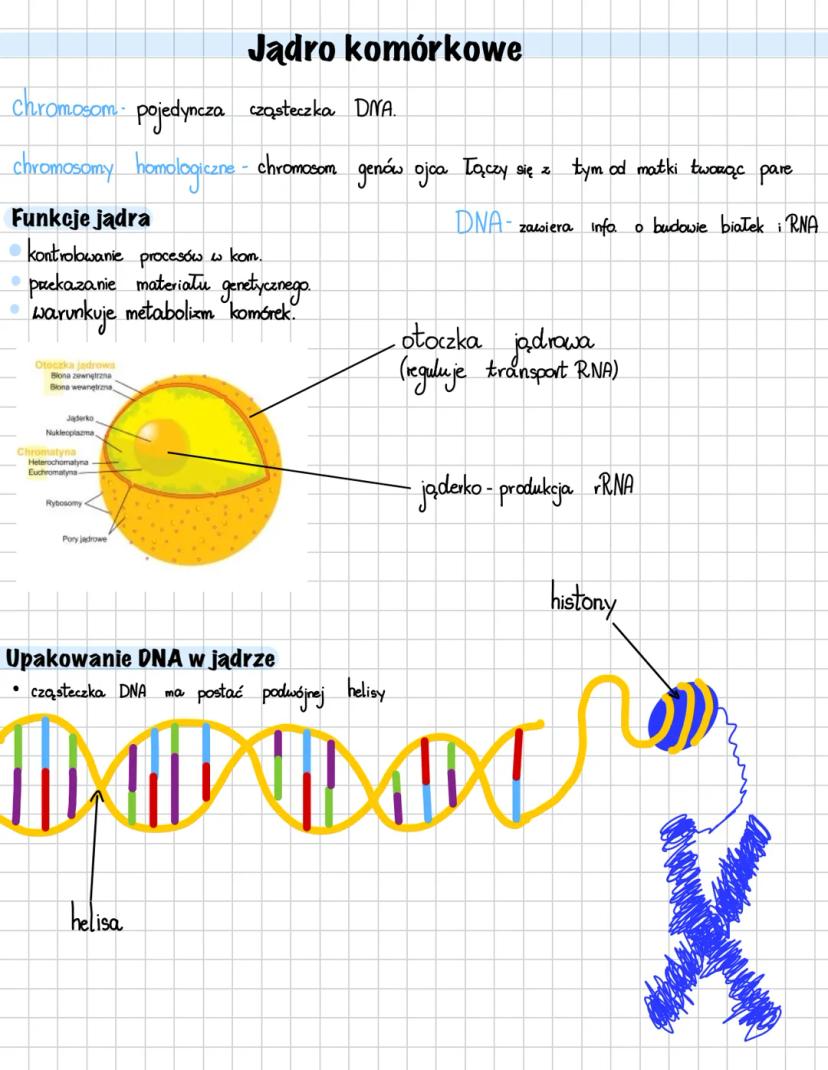 Jądro komórkowe
chromosom - pojedyncza cząsteczka DNA.
chromosomy homologiczne - chromosom genów ojca łączy się z tym od matki tworząc pare
Funkcje jądra
DNA - zawiera info. o budowie białek i RNA
• kontrolowanie procesów w kom.
• przekazanie materiału genetycznego.
• warunkuje metabolizm komórek.
otoczka jądrowa
(reguluje transport RNA)
Otoczka jądrowa
Błona zewnętrzna
Błona wewnętrzna
Jąderko
Nukleoplazma
Chromatyna
Heterochomatyna
Euchromatyna
Rybosomy
Pory jądrowe
jąderko - produkcja rRNA
histony
Upakowanie DNA w jądrze
• cząsteczka DNA ma postać podwójnej helisy
helisa